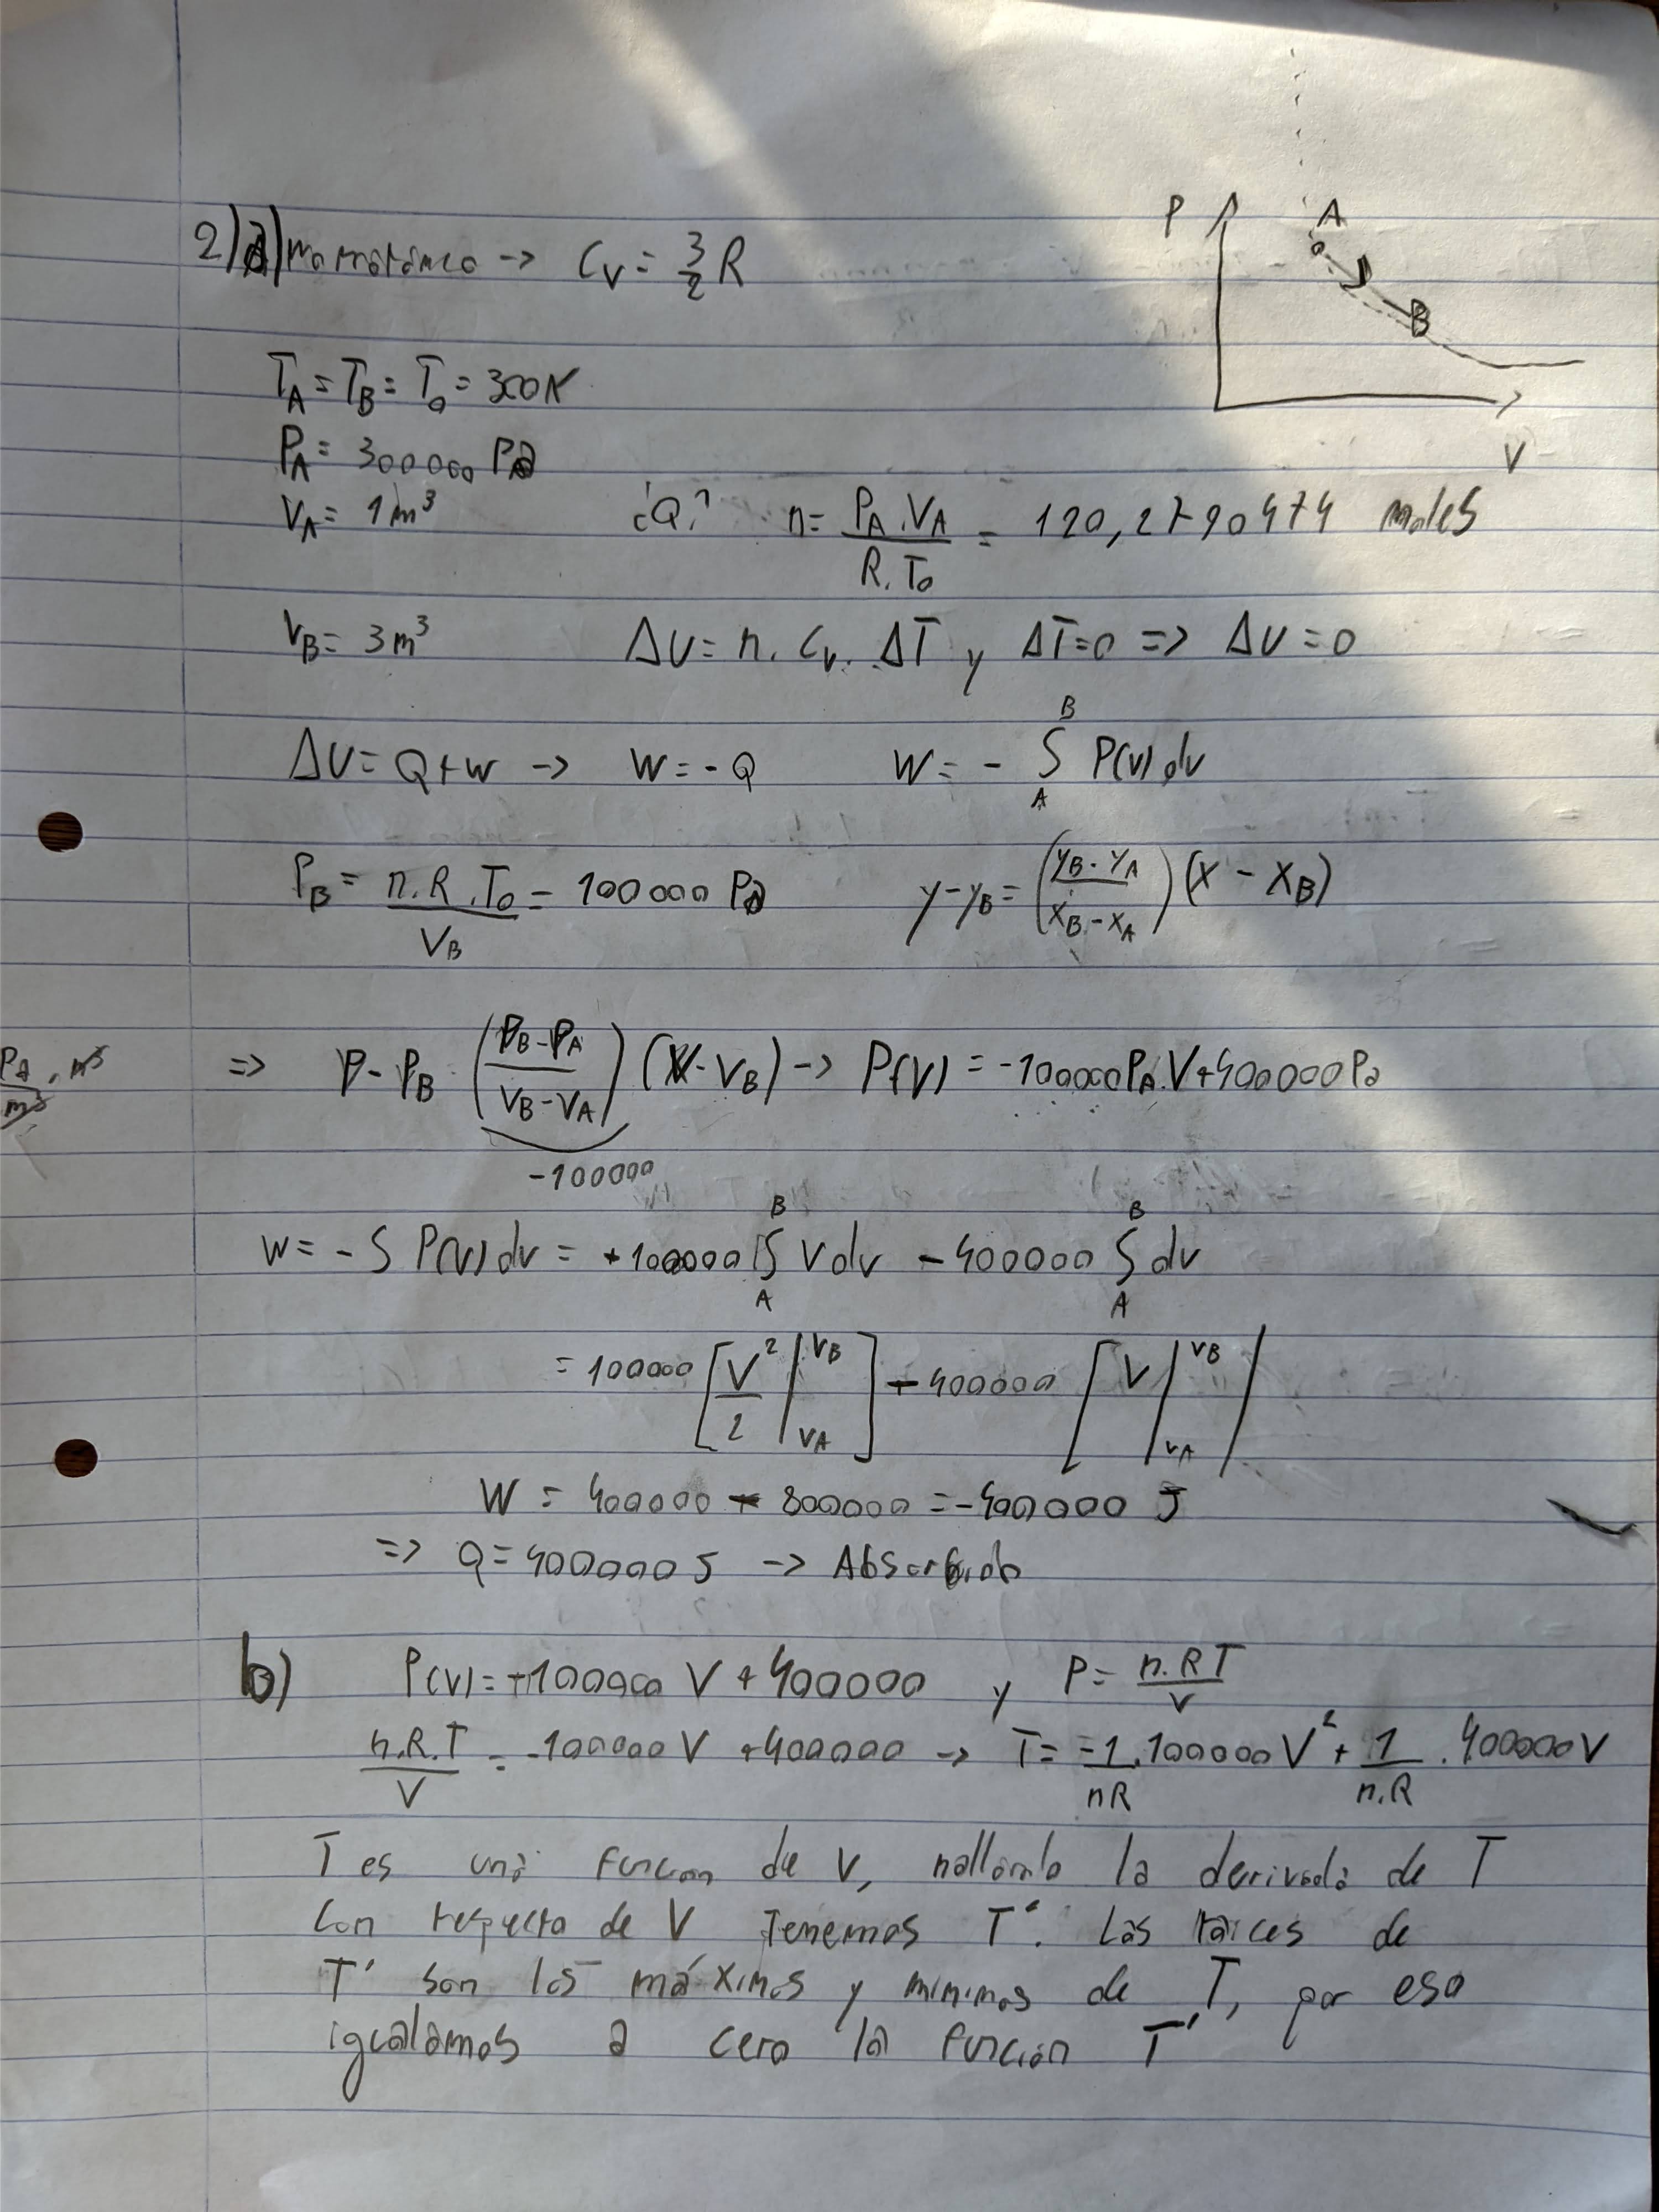 2) a) monoatómico -> Cv = 3/2 R
P A B V
TA = TB = T0 = 300K
PA = 300000 Pa
VA = 1m³ ¿Q? n = PA.VA / R.T0 = 120,2790474 moles
VB = 3m³ ΔU = n. Cv. ΔT y ΔT=0 => ΔU = 0
ΔU = Q+W -> W = -Q W = - ∫_A^B P(V) dV
PB = n.R.T0 / VB = 100000 Pa y-yB = (yB-yA / xB-xA) (x - xB)
Pa.m³ / m³ => P - PB = (PB-PA / VB-VA) (V-VB) -> P(V) = -100000Pa.V+400000Pa
-100000
W = - ∫ P(V) dV = +100000 ∫_A^B V dV - 400000 ∫_A^B dV
= 100000 [V²/2 |_VA^VB] - 400000 [V |_VA^VB]
W = 400000 - 800000 = -400000 J
=> Q = 400000 J -> Absorbido
b) P(V) = -100000 V + 400000 y P = n.RT / V
n.R.T / V = -100000 V + 400000 -> T = -1/nR .100000 V² + 1/n.R . 400000 V
T es una función de V, hallando la derivada de T
con respecto de V tenemos T'. Las raíces de
T' son los máximos y mínimos de T, por eso
igualamos a cero la función T'